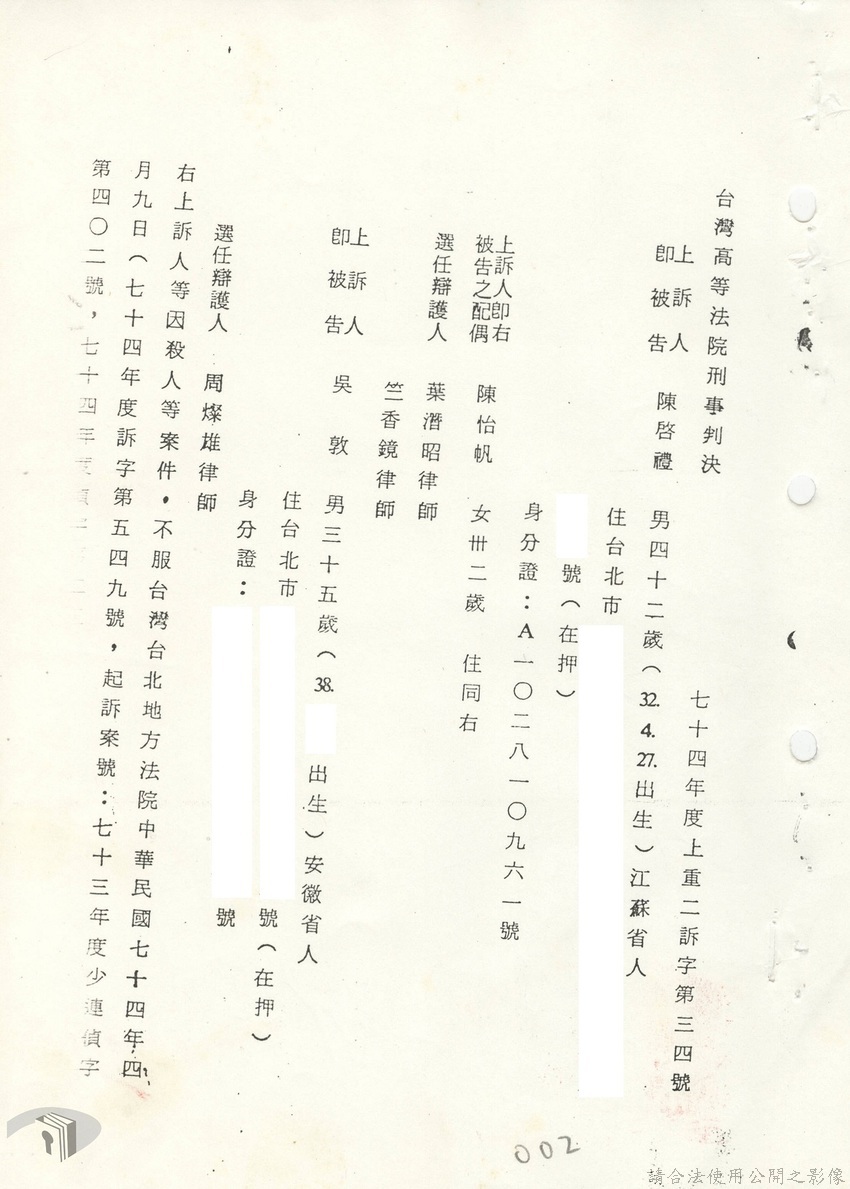 台灣高等法院刑事判決
七十四年度上重二訴字第三四號
上訴人
即被告 陳啓禮 男四十二歲（32.4.27.出生）江蘇省人
住台北市
號（在押）
身分證：A一〇二八一〇九六一號
上訴人即右
被告之配偶 陳怡帆 女卅二歲 住同右
選任辯護人 葉潛昭律師
竺香鏡律師
上訴人
即被告 吳敦 男三十五歲（38. 出生）安徽省人
住台北市 號（在押）
身分證： 號
選任辯護人 周燦雄律師
右上訴人等因殺人等案件，不服台灣台北地方法院中華民國七十四年四
月九日（七十四年度訴字第五四九號，起訴案號：七十三年度少連偵字
第四〇二號，七十四年度偵字
002
請合法使用公開之影像